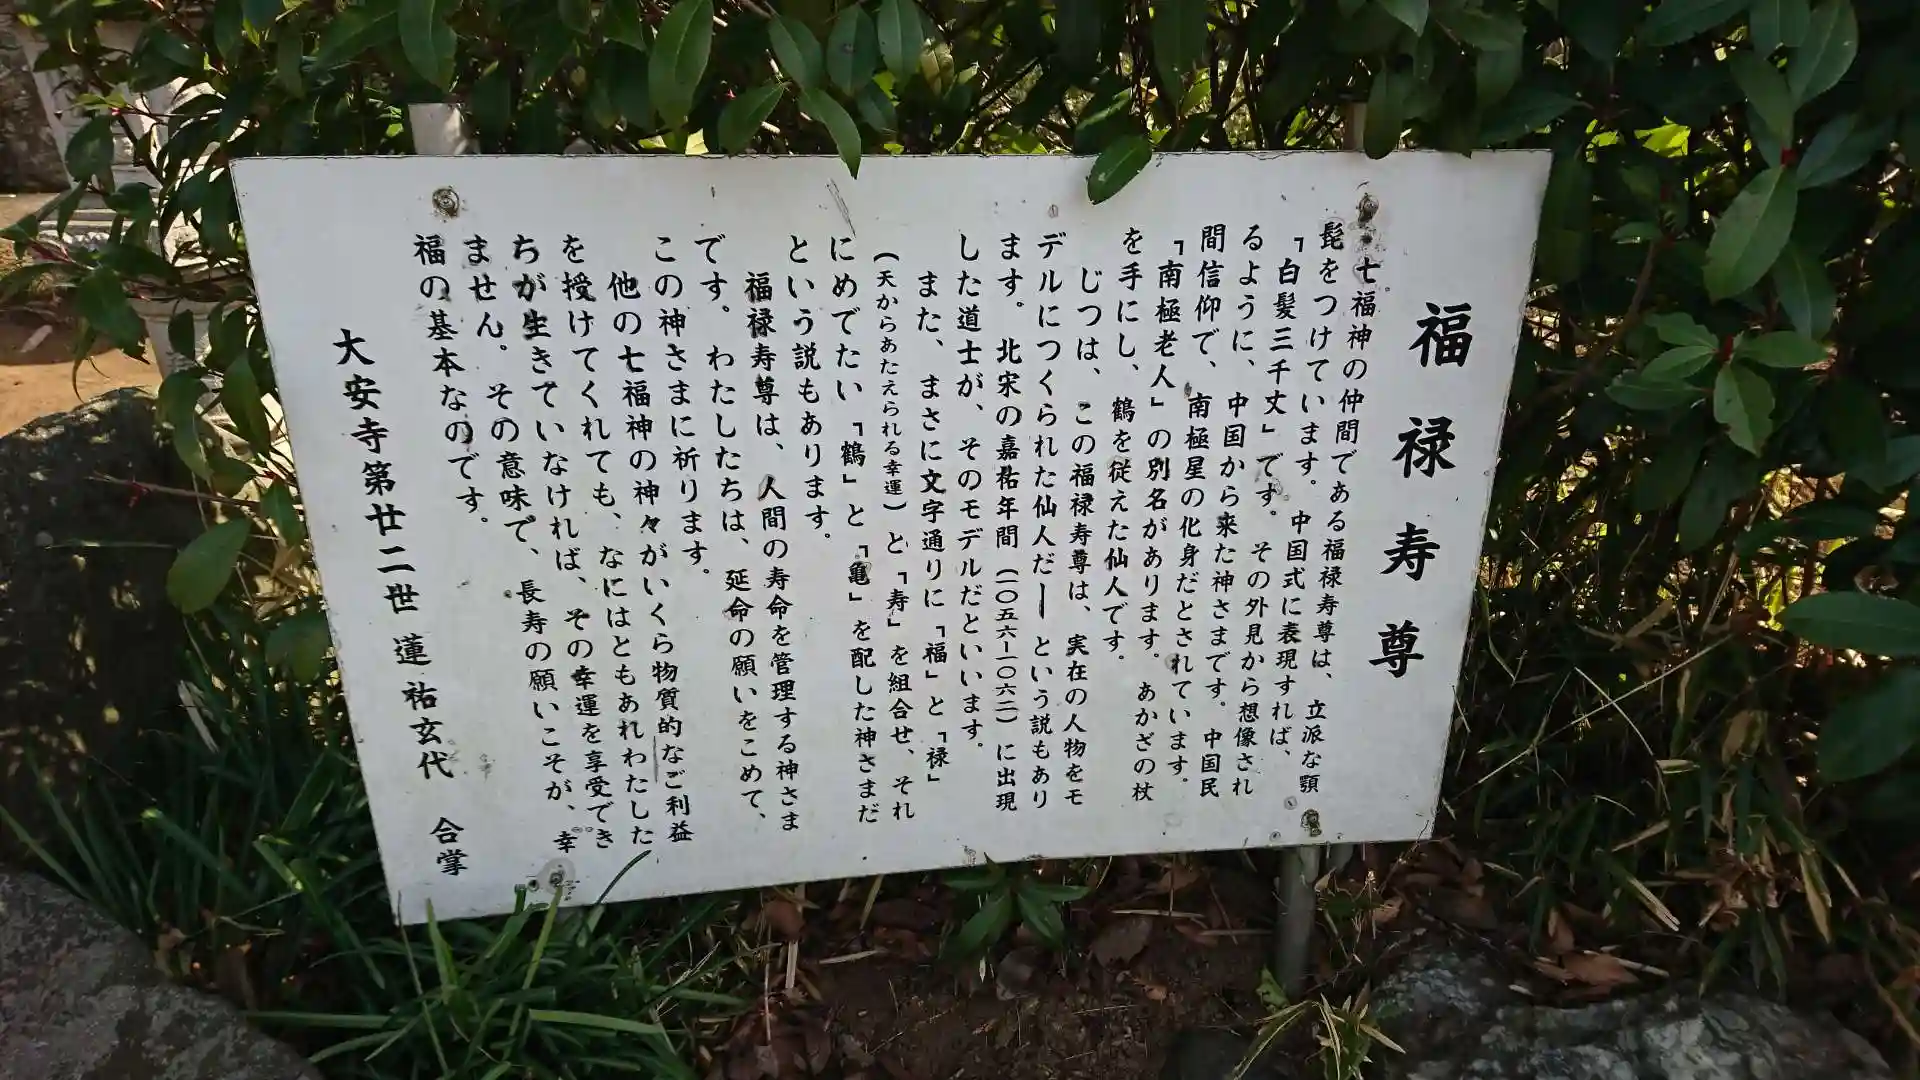 福禄寿尊
七福神の仲間である福禄寿尊は、立派な顎
髭をつけています。中国式に表現すれば、
「白髪三千丈」です。その外見から想像され
るように、中国から来た神さまです。中国民
間信仰で、南極星の化身だとされています。
「南極老人」の別名があります。あかざの杖
を手にし、鶴を従えた仙人です。
じつは、この福禄寿尊は、実在の人物をモ
デルにつくられた仙人だ――という説もあり
ます。北宋の嘉祐年間(一〇五六―一〇六二)に出現
した道士が、そのモデルだといいます。
また、まさに文字通りに「福」と「禄」
(天からあたえられる幸運)と「寿」を組合せ、それ
にめでたい「鶴」と「亀」を配した神さまだ
という説もあります。
福禄寿尊は、人間の寿命を管理する神さま
です。わたしたちは、延命の願いをこめて、
この神さまに祈ります。
他の七福神の神々がいくら物質的なご利益
を授けてくれても、なにはともあれわたした
ちが生きていなければ、その幸運を享受でき
ません。その意味で、長寿の願いこそが、幸
福の基本なのです。
大安寺第廿二世 蓮祐玄代 合掌